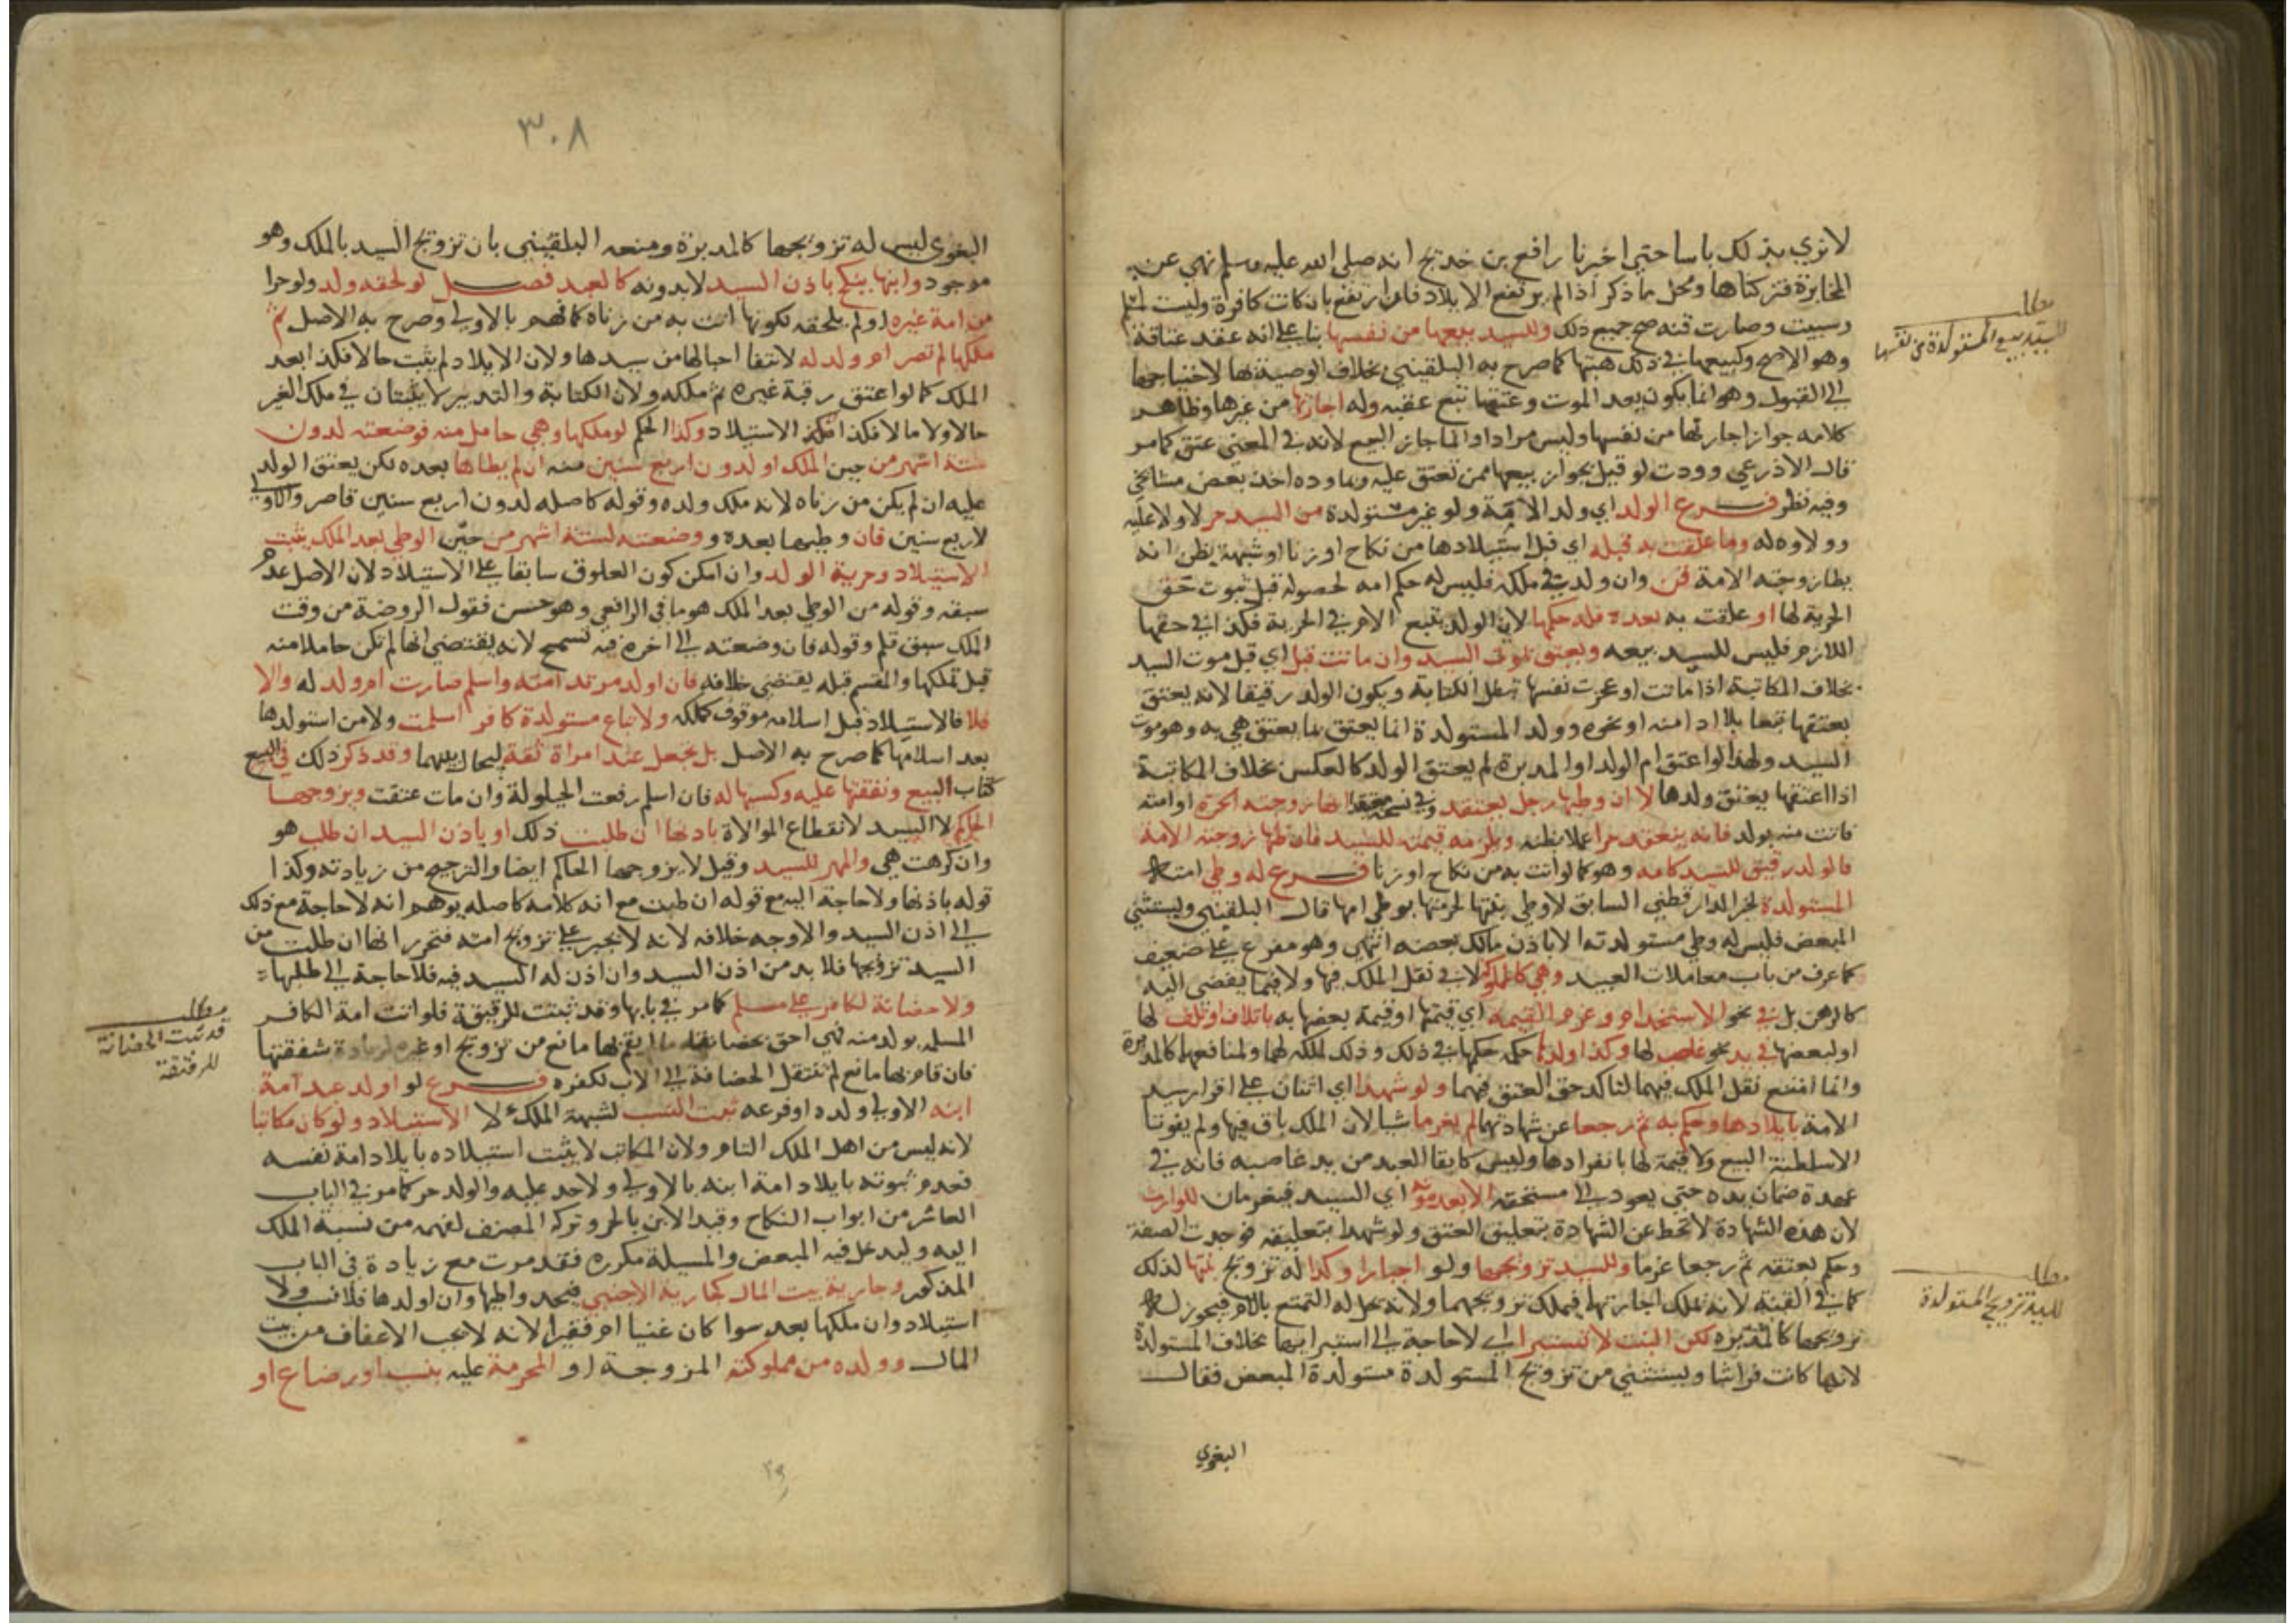 لا نري بذلك باسا حتي اخبرنا رافع بن خديج انه صلي الله عليه وسلم نهي عن
المخابرة فتركناها ومحل ما ذكر اذا لم يرتفع الايلاد فان ارتفع بان كانت كافرة وليست لمسلم
وسبيت وصارت قنه صح جميع ذلك وللسيد بيعها من نفسها بنا علي انه عقد عتاقة
وهو الاصح وكبيعها في ذلك هبتها كما صرح به البلقيني بخلاف الوصية بها لاحتياجها
الي القبول وهو انما يكون بعد الموت وعتقها تبع عقبه وله اجارتها من غيرها وظاهر
كلامه جواز اجارتها من نفسها وليس مرادا وانما جاز البيع لانه في المعني عتق كما مر
قال الاذرعي ووددت لو قيل بجواز بيعها ممن تعتق عليه وما وده اخذ بعض مشايخي
وفيه نظر فرع الولد اي ولد الامة ولو غير مستولدة من السيد حر لا ولا عليه
وولاوه له وما علقت به قبله اي قبل استيلادها من نكاح او زنا او شبهة يظن انه
يطا زوجته الامة قن وان ولدت في ملكه فليس له حكم امه لحصوله قبل ثبوت حق
الحرية لها او علقت به بعده فله حكمها لان الولد يتبع الام في الحرية فكذا في حقها
اللازم فليس للسيد بيعه ويعتق بموت السيد وان ماتت قبل اي قبل موت السيد
بخلاف المكاتبة اذا ماتت او عجزت نفسها تبطل الكتابة ويكون الولد رقيقا لانه يعتق
بعتقها تبعا بلا ادا منه او نحوه وولد المستولدة انما يعتق بما يعتق هي به وهو موت
السيد ولهذا لو اعتق ام الولد او المدبرة لم يعتق الولد كالعكس بخلاف المكاتبة
اذا اعتقها يعتق ولدها لا ان وطيها رجل يعتقد وفي نسخة معتقدا انها زوجته الحرة او امته
فاتت منه بولد فانه ينعقد حرا عملا بظنه ويلزمه قيمته للسيد فان ظنها زوجته الامة
فالولد رقيق للسيد كامه وهو كما لو اتت به من نكاح او زنا فرع له وطي امته
المستولدة لخبر الدارقطني السابق لا وطي بنتها لحرمتها بوطي امها قال البلقيني ويستثني
المبعض فليس له وطي مستولدته الا باذن مالك بعضه انتهي وهو مفرع علي ضعيف
كما عرف من باب معاملات العبيد وهي كالمملوكة لا في نقل الملك فيها ولا فيما يفضي اليه
كالرهن بل في نحو الاستخدام وغرم القيمة اي قيمتها او قيمة بعضها به باتلاف او تلف لها
او لبعضها في يد نحو غاصب لها وكذا اولدها حكمه حكمها في ذلك وذلك لملكه لهما ولمنافعهما كالمدبرة
وانما امتنع نقل الملك فيهما لتاكد حق العتق فيهما ولو شهدا اي اثنان علي اقرار سيد
الامة بايلادها وحكم به ثم رجعا عن شهادتهما لم يغرما شيا لان الملك باق فيها ولم يفوتا
الا سلطنة البيع ولا قيمة لها بانفرادها وليس كاباق العبد من يد غاصبه فانه في
عهدة ضمان يده حتي يعود الي مستحقه الا بعد موته اي السيد فيغرمان للوارث
لان هذه الشهادة لا تنحط عن الشهادة بتعليق العتق ولو شهدا بتعليقه فوجدت الصفة
وحكم بعتقه ثم رجعا غرما وللسيد تزويجها ولو اجبارا وكذا له تزويج بنتها لذلك
كما في القنة لانه يملك اجارتهما فيملك تزويجهما ولانه يحل له التمتع بالام فيجوز له
تزويجها كالمدبرة لكن البنت لا تستبرا اي لا حاجة الي استبرايها بخلاف المستولدة
لانها كانت فراشا ويستثني من تزويج المستولدة مستولدة المبعض فقال
البغوي
مطلب
للسيد بيع المستولدة من نفسها
مطلب
للسيد تزويج المستولدة
٣٠٨
البغوي ليس له تزويجها كالمدبرة ومنعه البلقيني بان تزويج السيد بالملك وهو
موجود وانها ينكح باذن السيد لا بدونه كالعبد فصل لو لحقه ولد ولو حرا
من امة غيره او لم يلحقه لكونها اتت به من زناه كما فهم بالاولي وصرح به الاصل ثم
ملكها لم تصر ام ولد له لانتفا احبالها من سيدها ولان الايلاد لم يثبت حالا فكذا بعد
الملك كما لو اعتق رقبة غيره ثم ملكه ولان الكتابة والتدبير لا يثبتان في ملك الغير
حالا ولا مالا فكذا الاستيلاد وكذا الحكم لو ملكها وهي حامل منه فوضعته لدون
ستة اشهر من حين الملك او لدون اربع سنين منه ان لم يطاها بعده لكن يعتق الولد
عليه ان لم يكن من زناه لانه ملك ولده وقوله كاصله لدون اربع سنين قاصر والاولي
لاربع سنين فان وطيها بعده ووضعته لستة اشهر من حين الوطي بعد الملك يثبت
الاستيلاد وحرية الولد وان امكن كون العلوق سابقا علي الاستيلاد لان الاصل عدم
سبقه وقوله من الوطي بعد الملك هو ما في الرافعي وهو حسن فقول الروضة من وقت
الملك سبق قلم وقوله فان وضعته الي اخره فيه تسمح لانه يقتضي انها لم تكن حاملا منه
قبل تملكها والمقسم قبله يقتضي خلافه فان اولد مرتد امته واسلم صارت ام ولد له والا
فلا فالاستيلاد قبل اسلامه موقوف كملكه ولا تباع مستولدة كافر اسلمت ولا من استولدها
بعد اسلامها كما صرح به الاصل بل تجعل عند امراة ثقة ليحال بينهما وقد ذكر ذلك في البيع
كتاب البيع ونفقتها عليه وكسبها له فان اسلم رفعت الحيلولة وان مات عتقت ويزوجها
الحاكم لا السيد لانقطاع الموالاة باذنها ان طلبت ذلك او باذن السيد ان طلب هو
وان كرهت هي والمهر للسيد وقيل لا يزوجها الحاكم ايضا والترجيح من زيادته وكذا
قوله باذنها ولا حاجة اليه مع قوله ان طلبت مع انه كلامه كاصله يوهم انه لا حاجة مع ذلك
الي اذن السيد والاوجه خلافه لانه لا يجبر علي تزويج امته فتحرر انها ان طلبت من
السيد تزويجها فلا بد من اذن السيد وان اذن له السيد فيه فلا حاجة الي طلبها
ولا حضانة لكافر علي مسلم كما مر في بابها وقد ثبتت للرقيقة فلو اتت امة الكافر
المسلمه بولد منه فهي احق بحضانته ما لم يقم بها مانع من تزويج او غيره لزيادة شفقتها
فان قام بها مانع لم تنتقل الحضانة الي الاب لكفره فرع لو اولد عبد امة
ابنه الاولي ولده او فرعه ثبت النسب لشبهة الملك لا الاستيلاد ولو كان مكاتبا
لانه ليس من اهل الملك التام ولان المكاتب لا يثبت استيلاده بايلاد امة نفسه
فعدم ثبوته بايلاد امة ابنه بالاولي ولا حد عليه والولد حر كما مر في الباب
العاشر من ابواب النكاح وقيد الابن بالحر وتركه المصنف لفهمه من نسبة الملك
اليه وليدخل فيه المبعض والمسيلة مكرره فقد مرت مع زيادة في الباب
المذكور وجارية بيت المال كجارية الاجنبي فيحد واطيها وان اولدها فلا نسب ولا
استيلاد وان ملكها بعد سوا كان غنيا ام فقيرا لانه لا يجب الاعفاف من بيت
المال وولده من مملوكته المزوجة او المحرمة عليه بنسب او رضاع او
مطلب
قد تثبت الحضانة
للرقيقة